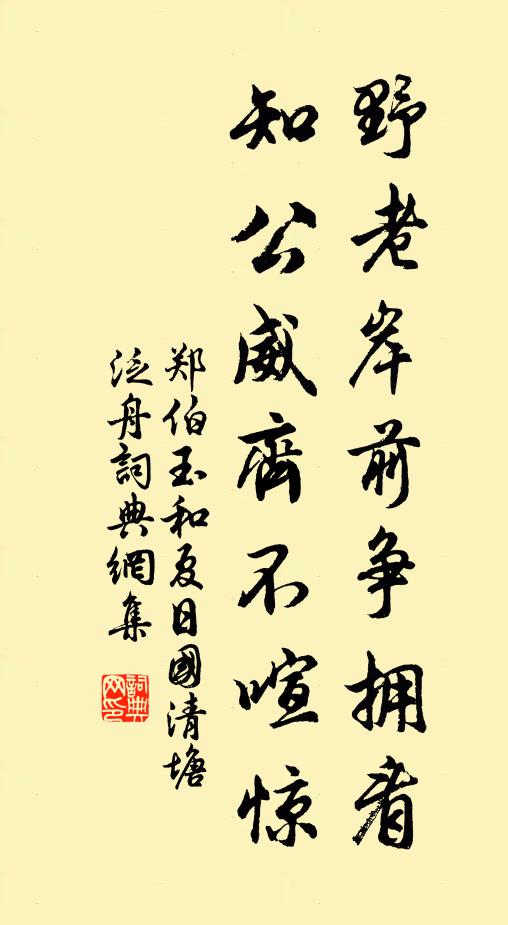 野老岸前争拥看
知公威齊不喧惊
郑伯玉和夏日國清塘
泛舟詞典網集
詞典网印